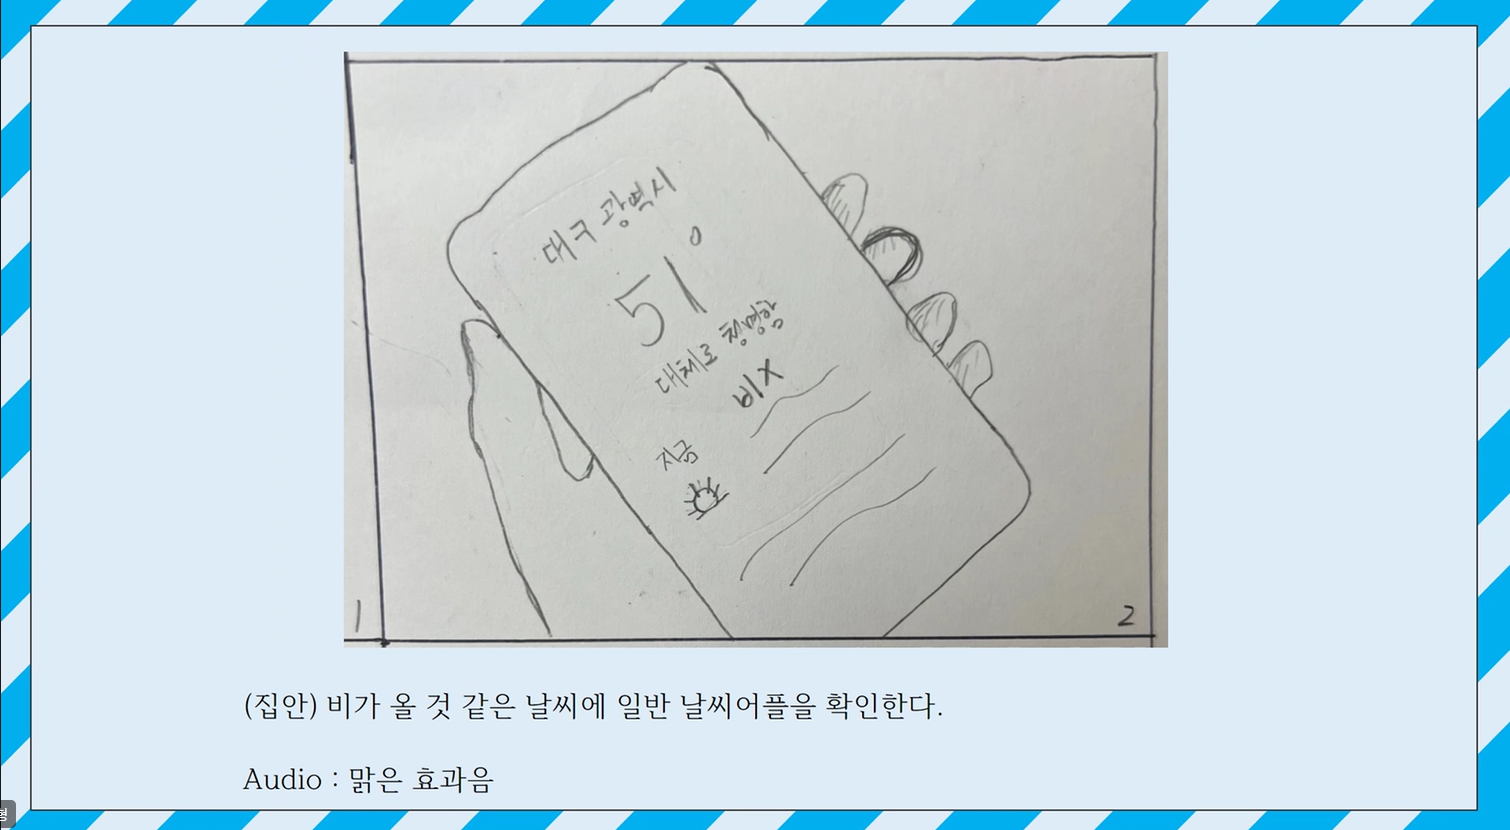 대구 광역시
51°
대체로 청명함
비X
지금
1
2
(집안) 비가 올 것 같은 날씨에 일반 날씨어플을 확인한다.
Audio : 맑은 효과음